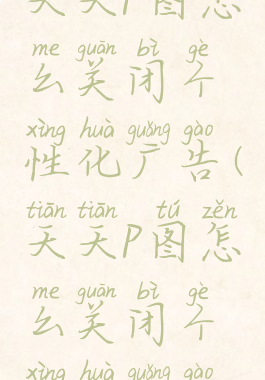 天天P图怎
me guān bì gè
么关闭个
xìng huà guǎng gào
性化广告(
tiān tiān tú zěn
天天P图怎
me guān bì gè
么关闭个
xìng huà guǎng gào